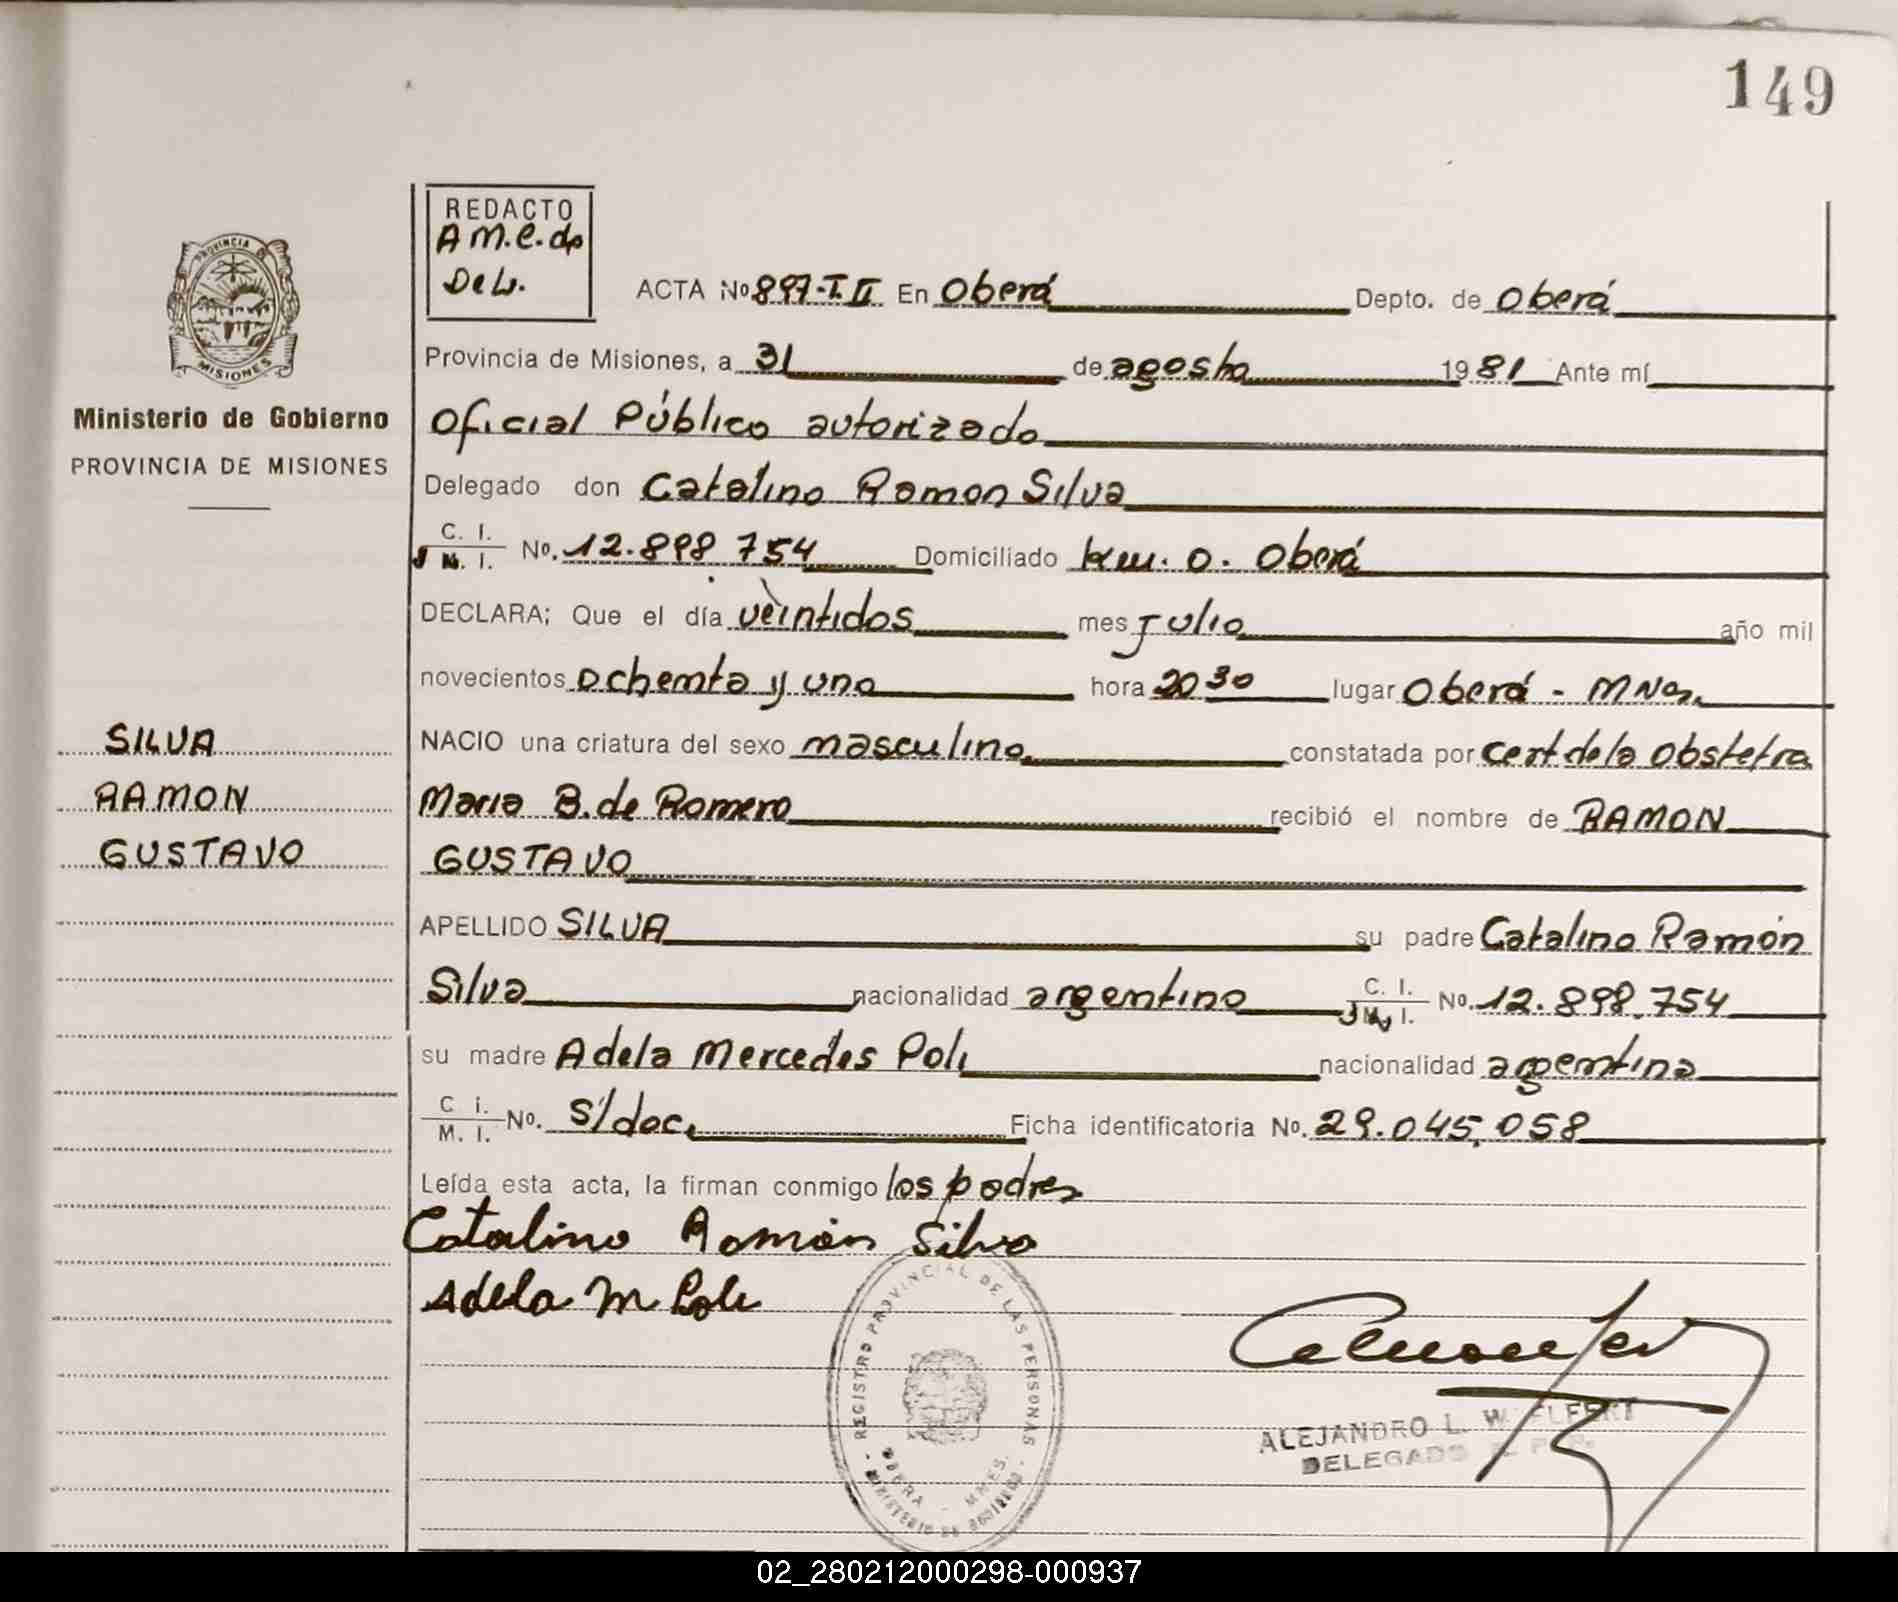 149
REDACTO
A M.e. do
Del.
PROVINCIA
MISIONES
Ministerio de Gobierno
PROVINCIA DE MISIONES
ACTA Nº 897-T.II En Oberá Depto. de Oberá
Provincia de Misiones, a 31 de agosto 1981 Ante mí
Oficial Público autorizado
Delegado don Catalino Ramon Silva
C. I. M. I. No. 12.898 754 Domiciliado km. 0. Oberá
DECLARA; Que el día veintidos mes Julio año mil
novecientos ochenta y uno hora 20 30 lugar Oberá - Mnes.
SILVA
NACIO una criatura del sexo masculino constatada por cert de la obstetra
RAMON
Maria B. de Romero recibió el nombre de RAMON
GUSTAVO
GUSTAVO
APELLIDO SILVA su padre Catalino Ramón
Silva nacionalidad argentino C. I. M. I. No. 12.898.754
su madre Adela Mercedes Poli nacionalidad argentina
C i. M. I. No. s/doc. Ficha identificatoria No. 29.045.058
Leída esta acta, la firman conmigo los padres
Catalino Ramón Silva
Adela M Poli
REGISTRO PROVINCIAL DE LAS PERSONAS
OBERA - MNES.
MINISTERIO DE GOBIERNO
ALEJANDRO L.
DELEGADO
02_280212000298-000937